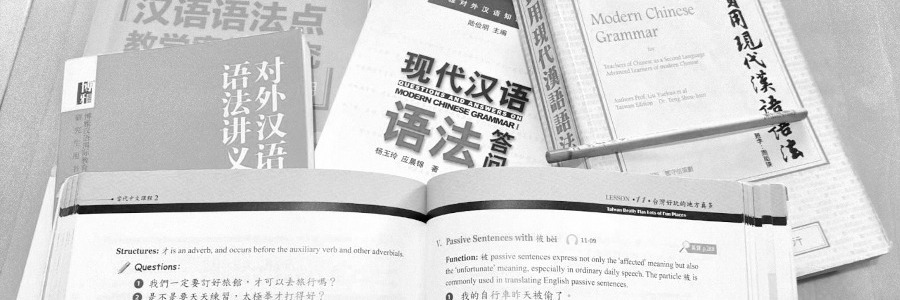 汉语语法点
对外汉语
语法讲义
博雅
陆俭明 主编
现代汉语
QUESTIONS AND ANSWERS ON
MODERN CHINESE GRAMMAR
语法
答问
杨玉玲 应晨锦 著
實用現代漢語語法
Modern Chinese
Grammar
for
Teachers of Chinese as a Second Language
Advanced Learners of modern Chinese
實用現代漢語語法
當代中文課程 2
Structures: 才 is an adverb, and occurs before the auxiliary verb and other adverbials.
Questions:
1 我們一定要訂好旅館，才可以去旅行嗎？
2 是不是要天天練習，太極拳才打得好？
LESSON 11 台灣好玩的地方真多
Taiwan Really Has Lots of Fun Places
V. Passive Sentences with 被 bèi 11-09
Function: 被 passive sentences express not only the 'affected' meaning but also
the 'unfortunate' meaning, especially in ordinary daily speech. The particle 被 is
commonly used in translating English passive sentences.
1 我的自行車昨天被偷了。